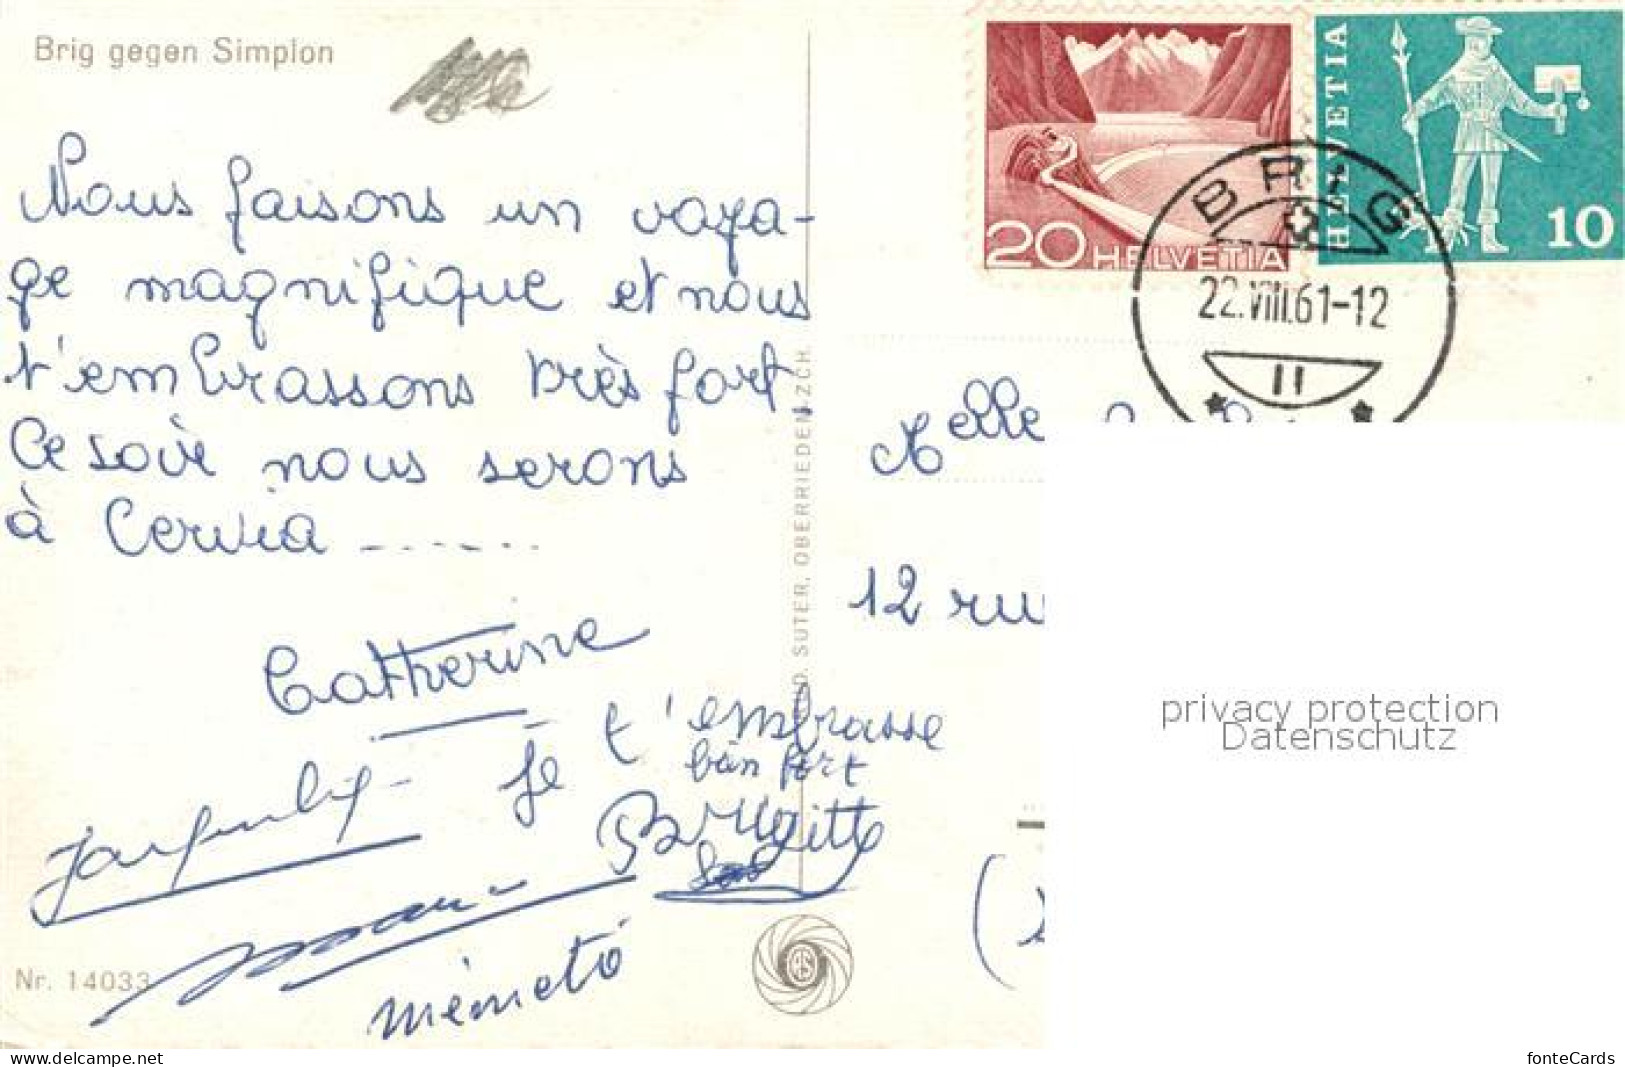 Brig gegen Simplon
Nous faisons un voya-
ge magnifique et nous
t'embrassons très fort.
Ce soir nous serons
à Cervia -------
Catherine
Je t'embrasse
bien fort
Brigitte
mémeto
Nr. 14033
SUTER, OBERRIEDEN-ZCH.
20 HELVETIA
HELVETIA 10
BRIG
22.VIII.61-12
Melle
12 ru
privacy protection
Datenschutz
www.delcampe.net
fonteCards